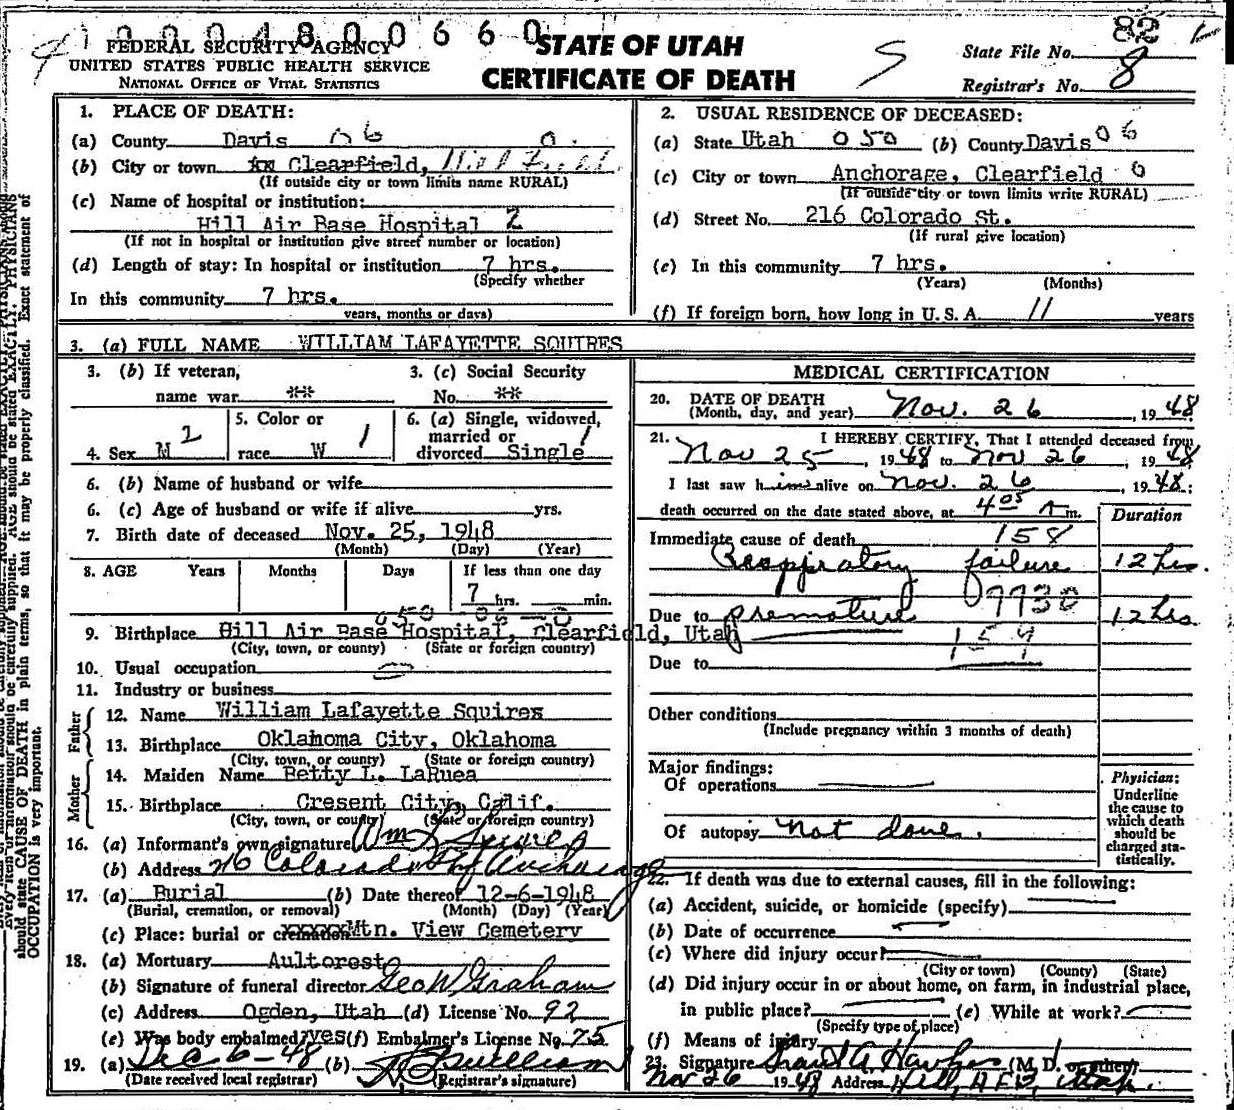 1 0 0 0 4 8 0 0 6 6 0
FEDERAL SECURITY AGENCY
UNITED STATES PUBLIC HEALTH SERVICE
NATIONAL OFFICE OF VITAL STATISTICS
STATE OF UTAH
CERTIFICATE OF DEATH
82
State File No.
Registrar's No. 8
1. PLACE OF DEATH:
(a) County Davis 06 0
(b) City or town Clearfield, Hill Field
(If outside city or town limits name RURAL)
(c) Name of hospital or institution:
Hill Air Base Hospital 2
(If not in hospital or institution give street number or location)
(d) Length of stay: In hospital or institution 7 hrs.
(Specify whether
In this community 7 hrs.
years, months or days)
2. USUAL RESIDENCE OF DECEASED:
(a) State Utah 050 (b) County Davis 06
(c) City or town Anchorage, Clearfield 0
(If outside city or town limits write RURAL)
(d) Street No. 216 Colorado St.
(If rural give location)
(e) In this community 7 hrs.
(Years) (Months)
(f) If foreign born, how long in U. S. A. 11 years
3. (a) FULL NAME WILLIAM LAFAYETTE SQUIRES
3. (b) If veteran,
name war **
3. (c) Social Security
No. **
4. Sex M 2
5. Color or
race W 1
6. (a) Single, widowed,
married or
divorced Single 1
6. (b) Name of husband or wife
6. (c) Age of husband or wife if alive yrs.
7. Birth date of deceased Nov. 25, 1948
(Month) (Day) (Year)
8. AGE Years Months Days If less than one day
7 hrs. min.
050 06 0
9. Birthplace Hill Air Base Hospital, Clearfield, Utah
(City, town, or county) (State or foreign country)
10. Usual occupation
11. Industry or business
Father
12. Name William Lafayette Squires
13. Birthplace Oklahoma City, Oklahoma
(City, town, or county) (State or foreign country)
Mother
14. Maiden Name Betty L. LaRuea
15. Birthplace Cresent City, Calif.
(City, town, or county) (State or foreign country)
16. (a) Informant's own signature Wm L Squires
(b) Address 216 Colorado Anchorage
17. (a) Burial (b) Date thereof 12-6-1948
(Burial, cremation, or removal) (Month) (Day) (Year)
(c) Place: burial or cremation Mtn. View Cemetery
18. (a) Mortuary Aultorest
(b) Signature of funeral director Geo W Graham
(c) Address Ogden, Utah (d) License No. 92
(e) Was body embalmed? yes (f) Embalmer's License No. 75
19. (a) Dec 6-48 (b)
(Date received local registrar) (Registrar's signature)
MEDICAL CERTIFICATION
20. DATE OF DEATH
(Month, day, and year) Nov. 26, 1948
21. I HEREBY CERTIFY, That I attended deceased from
Nov 25, 1948 to Nov 26, 1948
I last saw him alive on Nov. 26, 1948;
death occurred on the date stated above, at 4:05 A m.
Duration
Immediate cause of death 158
Respiratory failure 12 hrs.
07730
Due to premature 12 hrs
159
Due to
Other conditions
(Include pregnancy within 3 months of death)
Major findings:
Of operations
Of autopsy not done.
Physician:
Underline
the cause to
which death
should be
charged sta-
tistically.
22. If death was due to external causes, fill in the following:
(a) Accident, suicide, or homicide (specify)
(b) Date of occurrence
(c) Where did injury occur?
(City or town) (County) (State)
(d) Did injury occur in or about home, on farm, in industrial place,
in public place? (e) While at work?
(Specify type of place)
(f) Means of injury
23. Signature (M. D. or other)
Nov 26 1948 Address Hill, AFB, Utah.
should state CAUSE OF DEATH in plain terms, so that it may be properly classified. Exact statement of
OCCUPATION is very important.